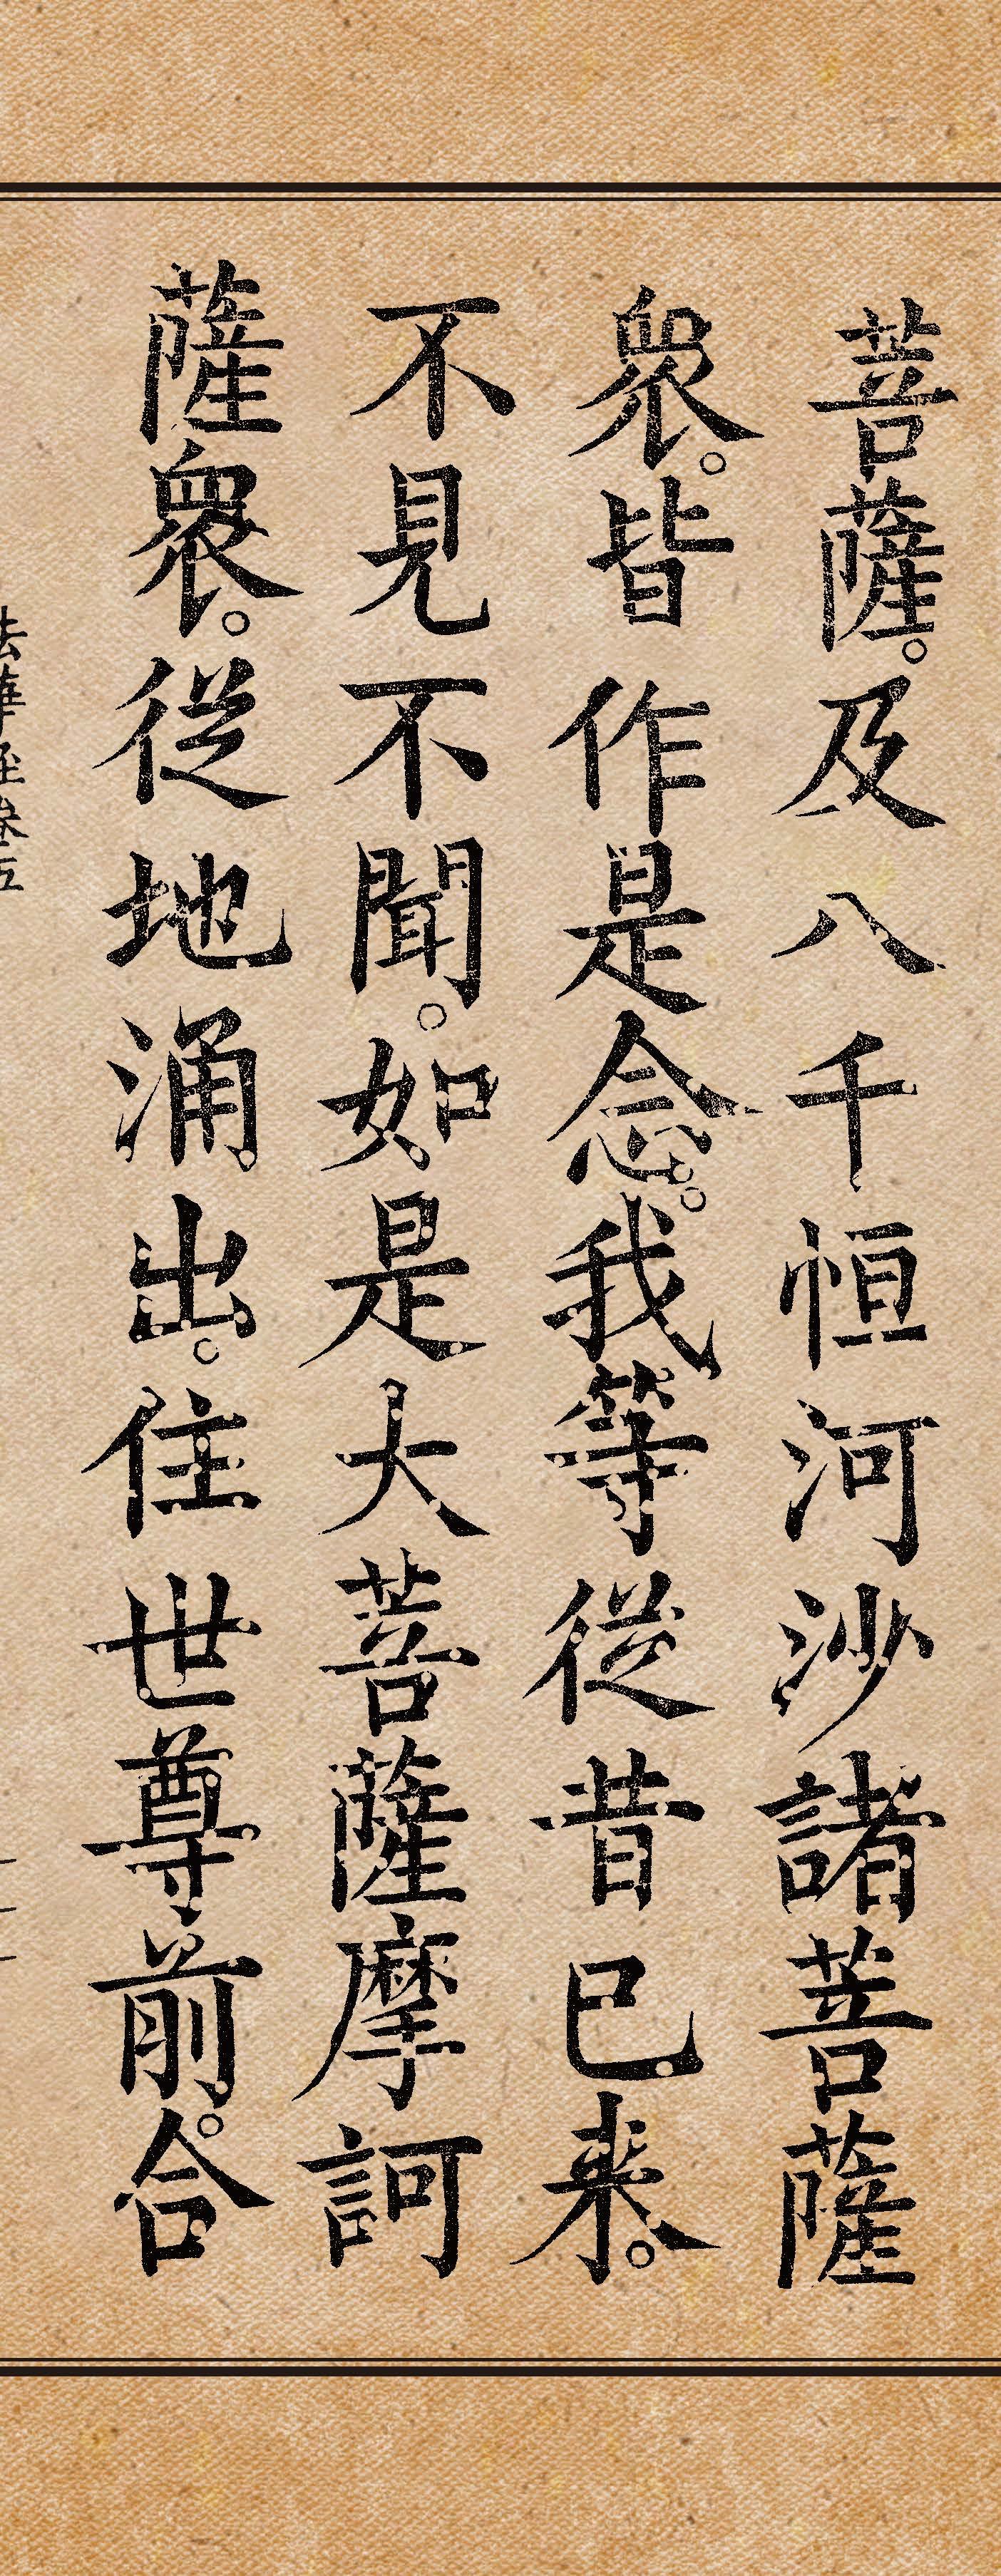 菩薩。及八千恒河沙諸菩薩
衆。皆作是念。我等從昔已来。
不見不聞。如是大菩薩摩訶
薩衆。從地涌出。住世尊前。合
法華經卷五